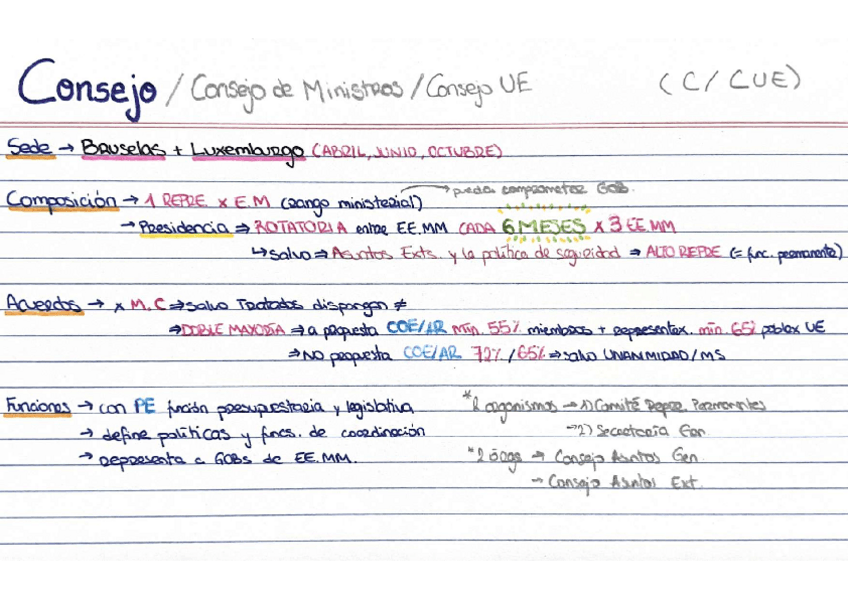 Consejo / Consejo de Ministros / Consejo UE (C / CUE)
Sede → Bruselas + Luxemburgo (ABRIL, JUNIO, OCTUBRE)
Composición → 1 REPRE. x E.M (rango ministerial) → pueda comprometer GOB.
→ Presidencia ⇒ ROTATORIA entre EE.MM CADA 6 MESES x 3 EE.MM
↳ salvo ⇒ Asuntos Exts. y la política de seguridad ⇒ ALTO REPRE (= func. permanente)
Acuerdos → x M.C ⇒ salvo Tratados dispongan ≠
⇒ DOBLE MAYORÍA ⇒ a propuesta COE/AR mín. 55% miembros + representax. mín. 65% poblax UE
⇒ NO propuesta COE/AR 72% / 65% ⇒ salvo UNANIMIDAD/MS
Funciones → con PE función presupuestaria y legislativa
→ define políticas y funcs. de coordinación
→ representa a GOBs de EE.MM.
*2 organismos → 1) Comité Repre. Permanentes
→ 2) Secretaría Gen.
*2 órgs → Consejo Asuntos Gen.
→ Consejo Asuntos Ext.